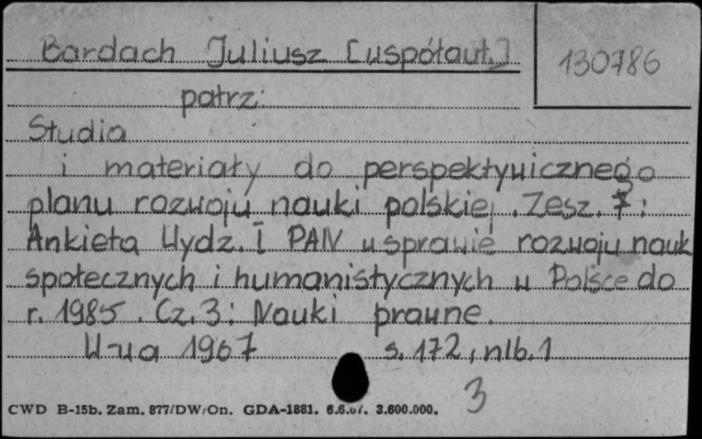 Bardach Juliusz [współaut.]
130786
patrz:
Studia
i materiały do perspektywicznego
planu rozwoju nauki polskiej. Zesz. 7:
Ankieta Wydz. I PAN w sprawie rozwoju nauk
społecznych i humanistycznych w Polsce do
r. 1985. Cz. 3: Nauki prawne.
W-wa 1967 s. 172, nlb. 1
3
CWD B-15b. Zam. 877/DW/On. GDA-1881. 6.6.67. 3.600.000.